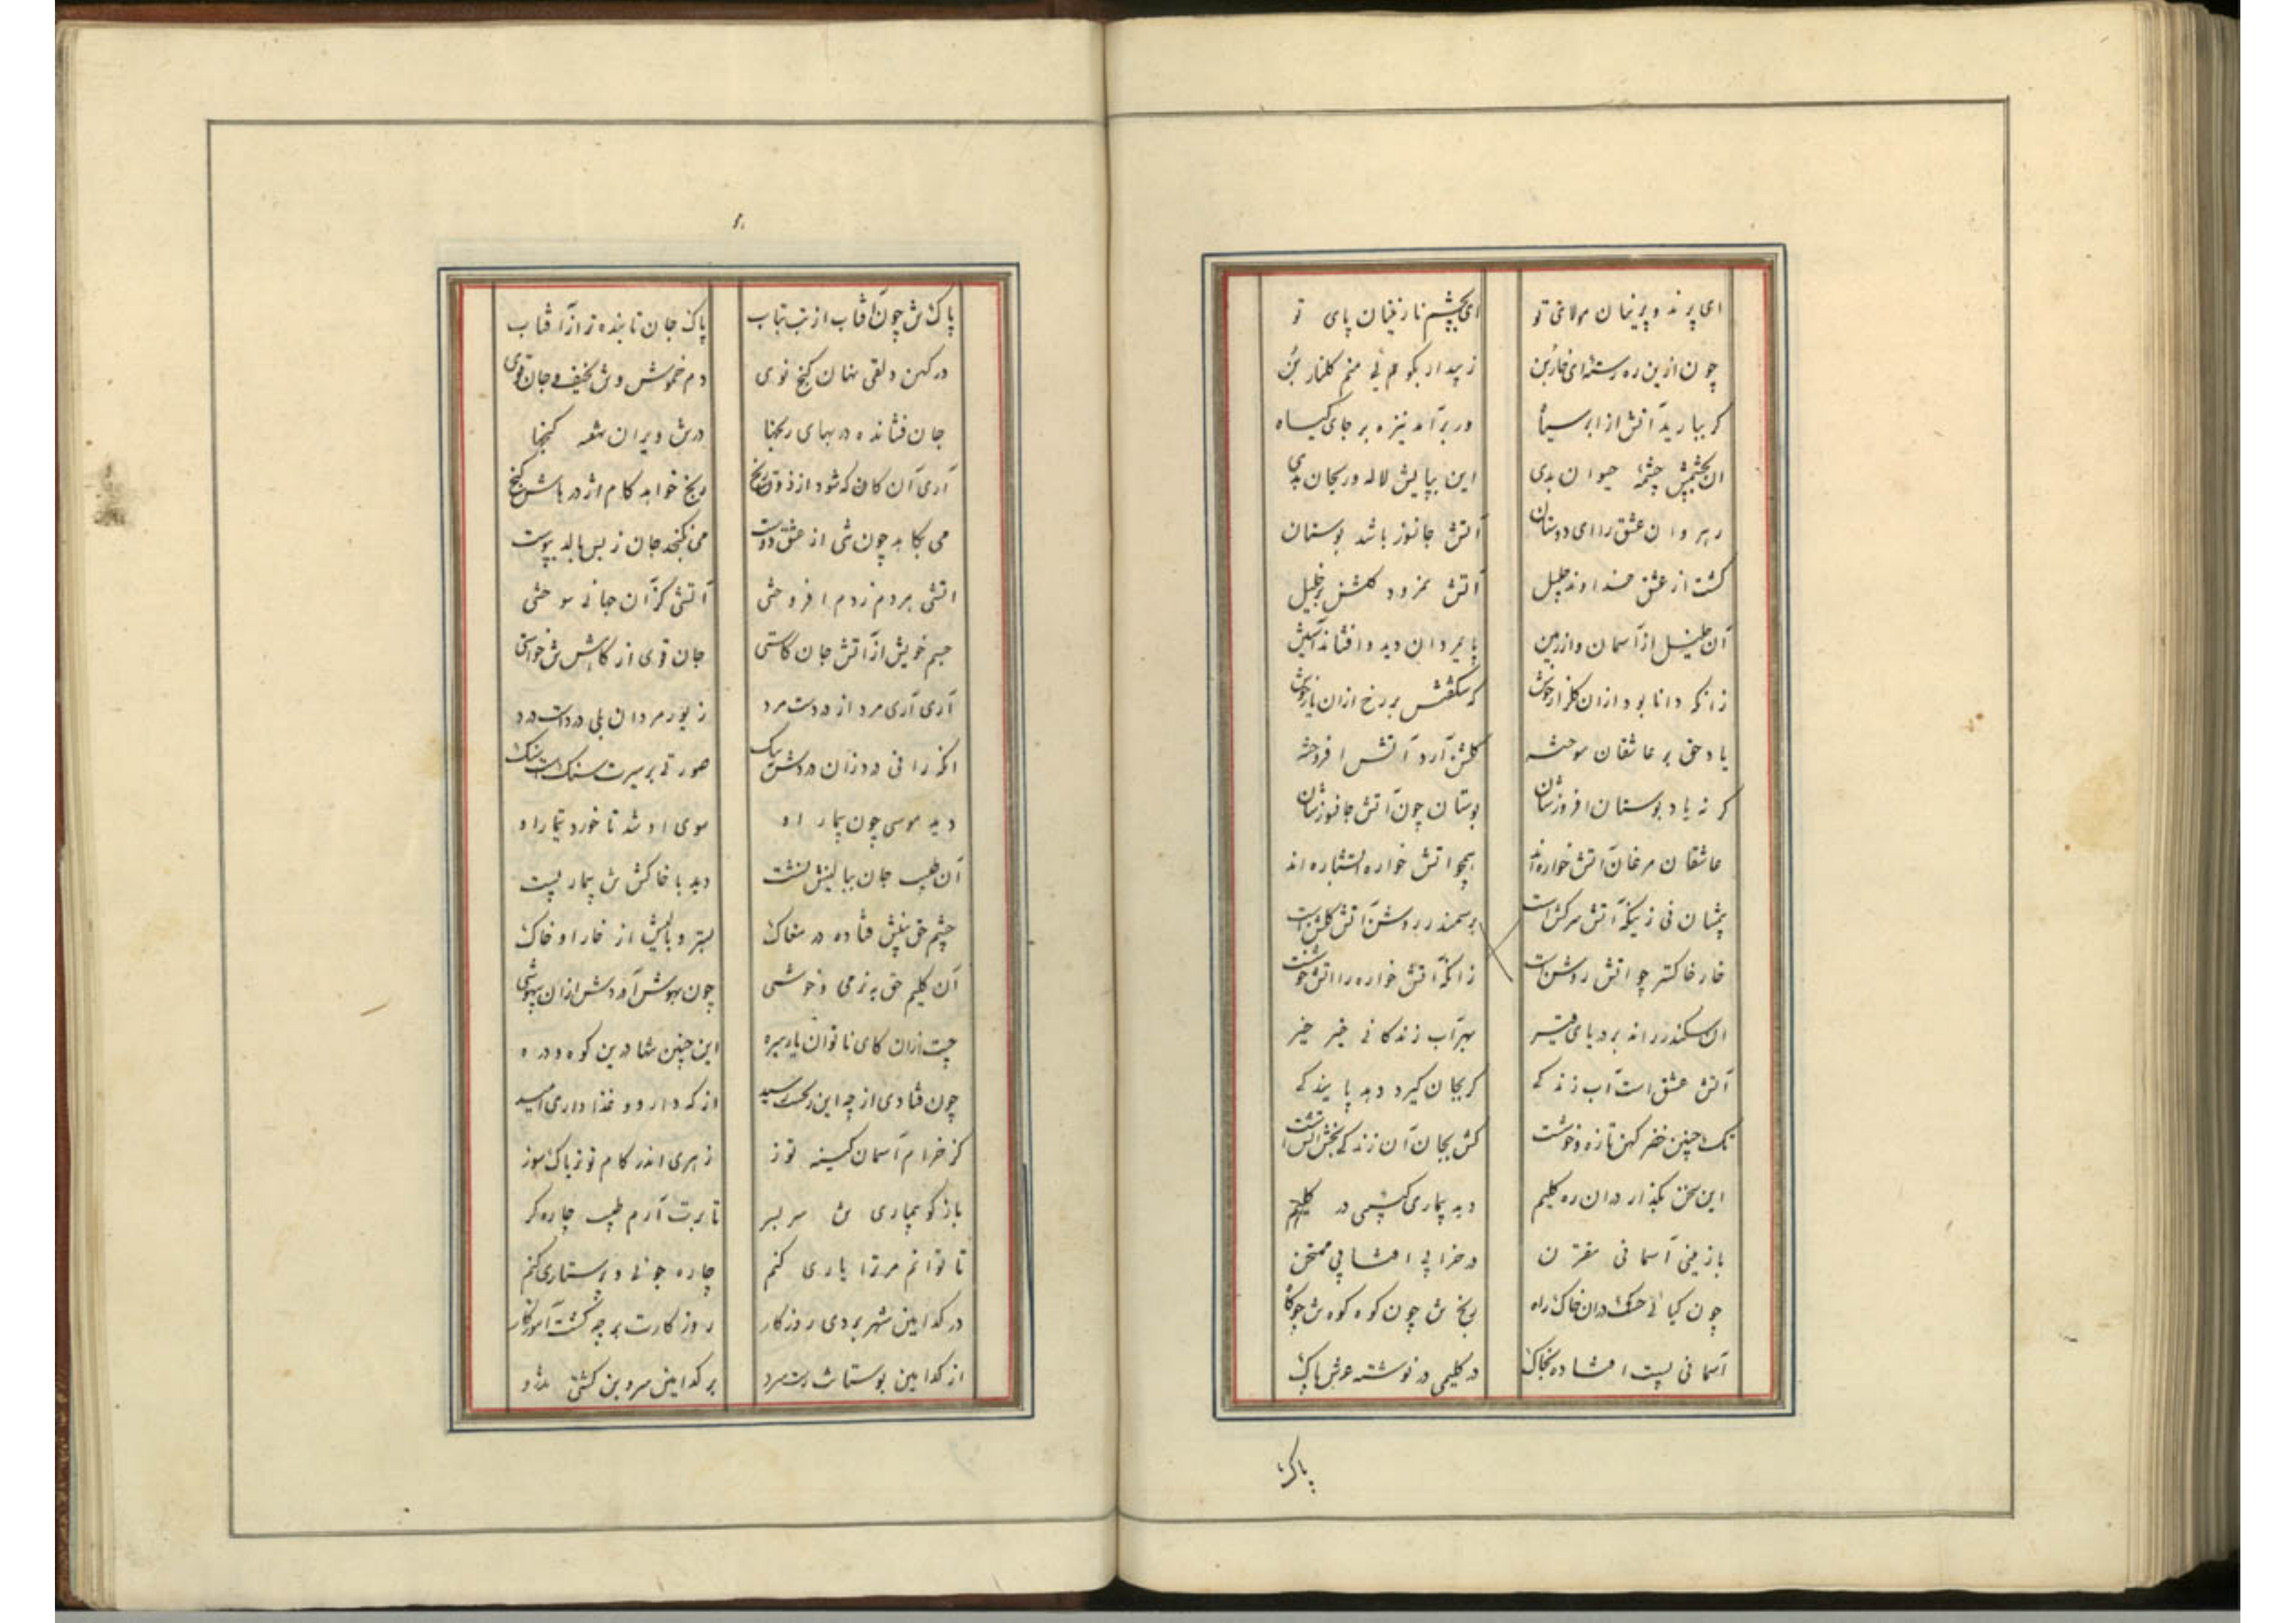 ای پرند و پرنیان مولای تو ای بچشم نازنینان پای تو
چون ازین ره رسته‌ای خاربن ز پیدار بکو هم نی منم کلنار بن
کر ببارید آتش از ابر سیاه ور برآمد نیزه بر جای کیاه
ان بچشمش چشمهٔ حیوان بدی این بپایش لاله و ریحان بدی
رهروان عشق را ای دوستان آتش جانسوز باشد بوستان
کشت از عشق خداوند جلیل آتش نمرود کلشن بر خلیل
آن خلیل از آسمان و از زمین پایمردان دید و افشاند آستین
زانکه دانا بود ازان کلزار خویش که شکفتش بر رخ ازان یار خویش
یاد حق بر عاشقان سوخته کلشن آرد آتش افروخته
کر نه یاد بوستان افروزشان بوستان چون آتش جانسوزشان
عاشقان مرغان آتش خواره‌اند همچو اتش خواره استشاره اند
پیششان نی زینکه آتش سرکش است بر سمندر روشن آتش کلشن است
خار خاکستر چو اتش روشن است زانکه آتش خواره را اتش خوشست
ان سکندر راند بر دریای قیر بهر آب زندکانی خیر خیر
آتش عشق است آب زندکی کر بجان کیرد دهد پایندکی
نک چنین خضر کهن تازه و خوشست کش بجان آن زندکی بخش آتش است
این سخن بکذار دران ره کلیم دید بیماری کشمی در کلیم
با زمینی آسمانی مقترن در خرابی افتابی ممتحن
چون کیائی خشک دران خاک راه رنج تن چون کوه کوه تن چو کاه
آسمانی پست افتاده بخاک در کلیمی در نوشته عرش پاک
پاک تن
پاک تن چون آفتاب از تب بتاب پاک جان تابنده‌تر از آفتاب
در کهن دلقی نهان کنج نوی دم خموش و تن نحیف و جان قوی
جان فشانده در بهای رنجها در تن ویران نهفته کنجها
آری آن کان که شود از ذوق رنج رنج خواهد کام اژدرهاش کنج
می بکاهد چون تنی از عشق دوست می نکنجد جان ز بس بالد بپوست
اتشی هر دم ز دم افروختی آتشی کز آن جهانی سوختی
جسم خویش از آتش جان کاستی جان قوی از کاهش تن خواستی
آری آری مرد از درد است مرد زیور مردان بلی درد است درد
انکه را نی درد زان دردش سبک صورتی بر سیرت سنک است سنک
دید موسی چون بیمار راه سوی او شد تا خورد تیمار او
آن طبیب جان ببالینش نشست دید با خاکش تن بیمار پست
چشم حق بینش فتاده در مغاک بستر و بالینش از خار و خاک
آن کلیم حق به نرمی و خوشی چون بهوش آوردش ازان بیهوشی
جست ازان کای ناتوان یار سره این چنین تنها درین کوه و دره
چون فتادی از چه این رنجت رسید از که دارو و غذا داری امید
کز خرام آسمان کینه توز زهری اندر کام تو تریاک سوز
باز کو بیماری تن سر بسر تا برت آرم طبیب چاره‌کر
تا توانم مر ترا یاری کنم چاره جوئی و پرستاری کنم
در کدامین شهر بردی روزکار روز کارت بر چه کشت آموزکار
از کدامین بوستان است سرد بر کدامین سروبن کشتی تذرو